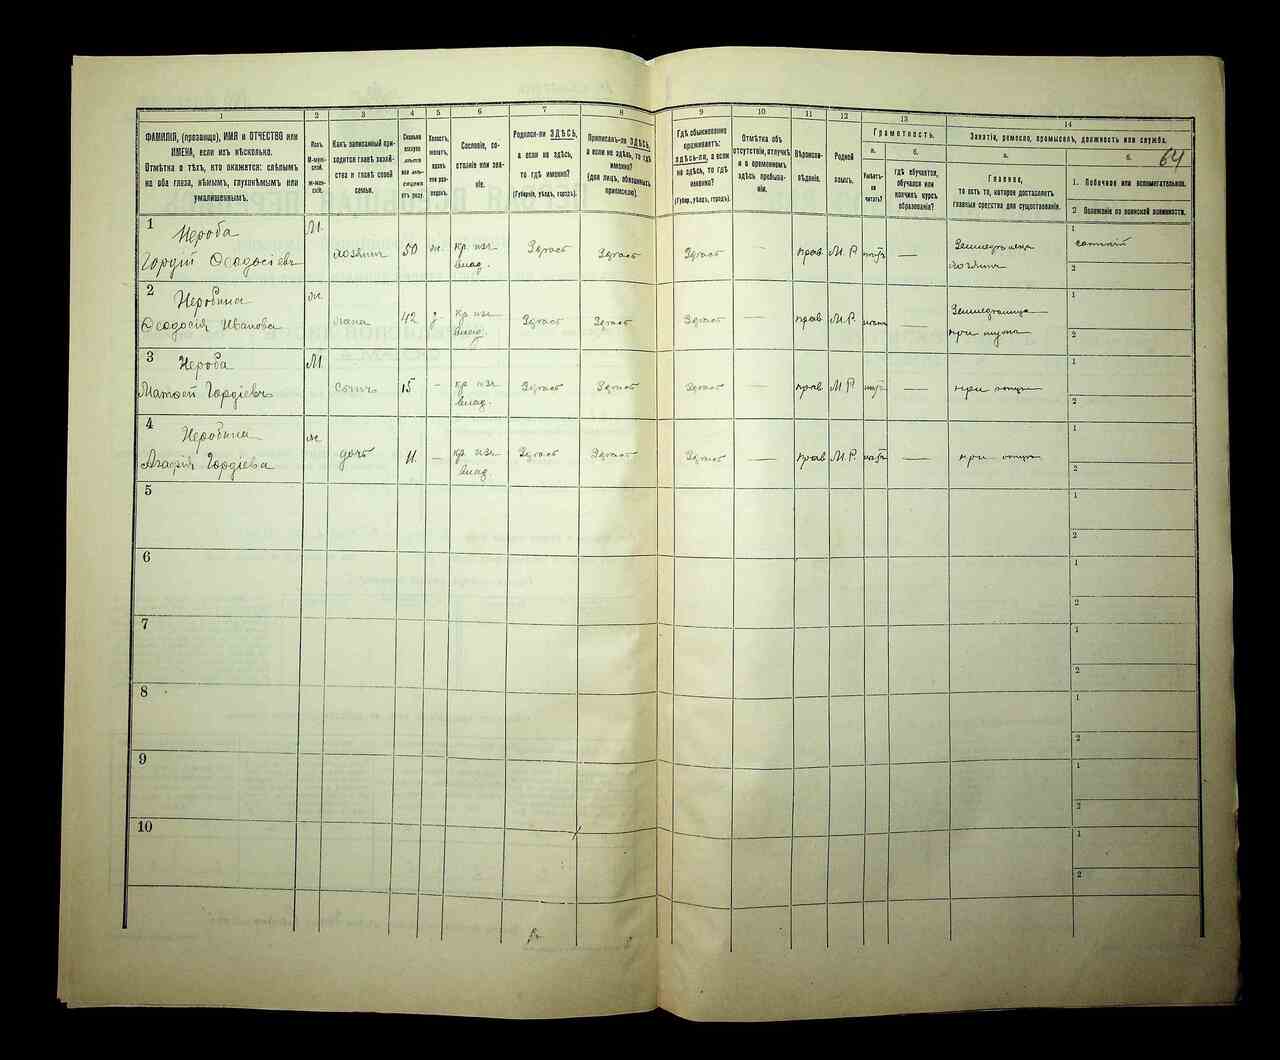 1 2 3 4 5 6 7 8 9 10 11 12 13 14
ФАМИЛІЯ, (прозвище), ИМЯ и ОТЧЕСТВО или
ИМЕНА, если ихъ нѣсколько.
Отмѣтка о тѣхъ, кто окажется: слѣпымъ
на оба глаза, нѣмымъ, глухонѣмымъ или
умалишеннымъ.
Полъ
М-мужской.
Ж-женскій.
Какъ записанный приходится
главѣ хозяйства
и главѣ своей
семьи.
Холостъ,
женатъ,
вдовъ
Сословіе, состояніе
или званіе.
Родился-ли ЗДѢСЬ,
а если не здѣсь,
то гдѣ именно?
(Губернія, уѣздъ, городъ).
Приписанъ-ли ЗДѢСЬ,
а если не здѣсь, то гдѣ
именно?
(для лицъ, обязанныхъ
припискою).
Гдѣ обыкновенно
проживаетъ:
ЗДѢСЬ-ли, а если
не здѣсь, то гдѣ
именно?
(Губер., уѣздъ, городъ).
Отмѣтка объ
отсутствіи, отлучкѣ
и о временномъ
здѣсь пребываніи.
Вѣроисповѣданіе.
Родной
языкъ.
Грамотность.
а.
Умѣетъ-ли
читать?
б.
гдѣ обучается,
обучался или
кончилъ курсъ
образованія?
Занятіе, ремесло, промыселъ, должность или служба.
а.
Главное,
то есть то, которое доставляетъ
главныя средства для существованія.
б.
64
1. Побочное или вспомогательное.
2 Положеніе по воинской повинности.
1
Нероба
Гордій Ѳеодосіевъ
М.
хозяинъ
50
ж.
кр. изъ
влад.
Здѣсь
Здѣсь
Здѣсь
—
прав
М. Р.
—
Земледѣлецъ
хозяинъ
1
2
2
Неробина
Ѳеодосія Иванова
ж.
жена
42
з
кр. изъ
влад.
Здѣсь
Здѣсь
Здѣсь
—
прав
М. Р.
при мужѣ
1
2
3
Нероба
Матѳей Гордіевъ
М.
сынъ
15
-
кр. изъ
влад.
Здѣсь
Здѣсь
Здѣсь
—
прав
М. Р.
—
при отцѣ
1
2
4
Неробина
Агафія Гордіева
ж.
дочь
11
—
кр. изъ
влад.
Здѣсь
Здѣсь
Здѣсь
—
прав
М. Р.
—
при отцѣ
1
2
5
1
2
6
1
2
7
1
2
8
1
2
9
1
2
10
1
2